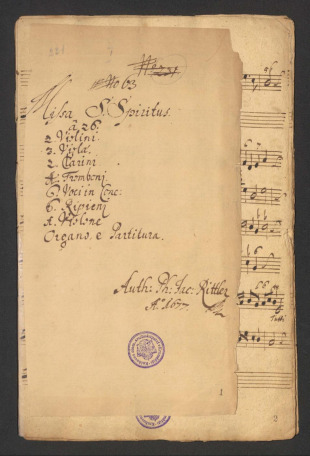 No 63
Missa S. Spiritus.
à 26.
2. Violini
3. Violæ
2. Clarini
4. Tromboni
6. Voci in Conc:
6. Ripieni
1. Violone
Organo e Partitura.
Auth: Ph: Jac: Rittler
Aº 1677
1
6
6
Tutti
2